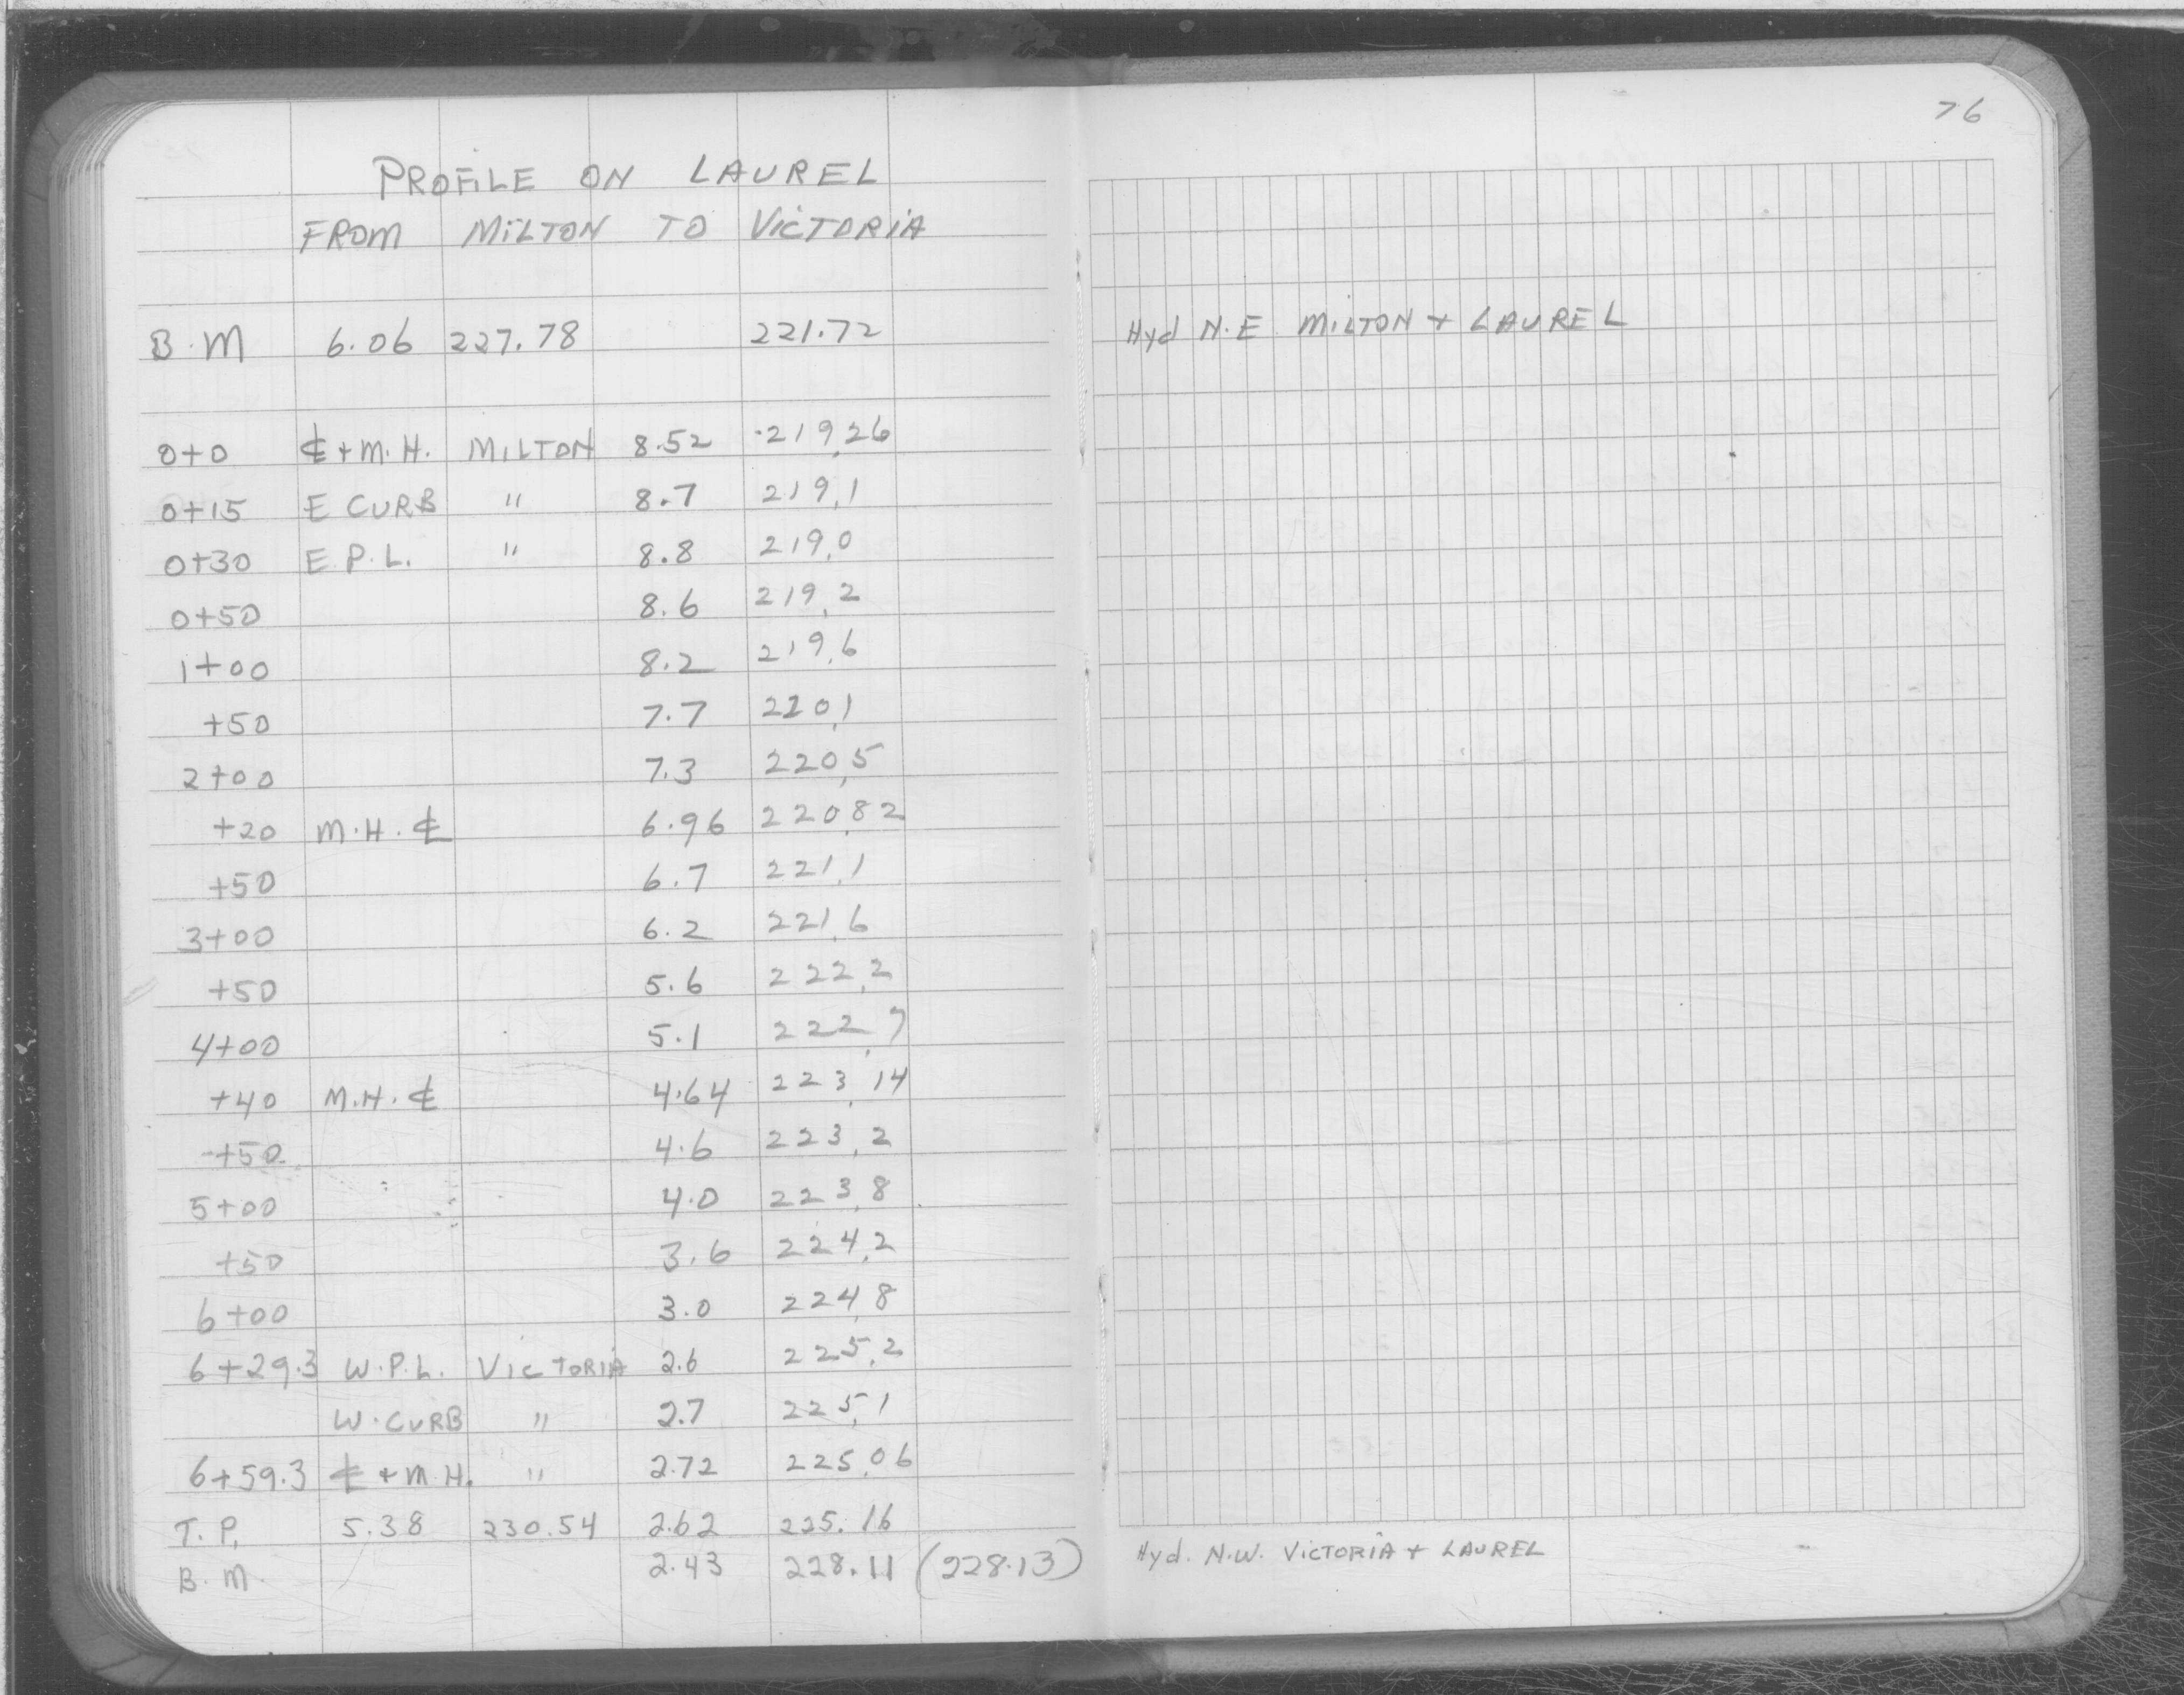 PROFILE ON LAUREL
FROM MILTON TO VICTORIA
B.M 6.06 227.78 221.72
0+0 ℄+M.H. MILTON 8.52 219.26
0+15 E CURB " 8.7 219.1
0+30 E.P.L. " 8.8 219.0
0+50 8.6 219.2
1+00 8.2 219.6
+50 7.7 220.1
2+00 7.3 220.5
+20 M.H.℄ 6.96 220.82
+50 6.7 221.1
3+00 6.2 221.6
+50 5.6 222.2
4+00 5.1 222.7
+40 M.H.℄ 4.64 223.14
+50 4.6 223.2
5+00 4.0 223.8
+50 3.6 224.2
6+00 3.0 224.8
6+29.3 W.P.L. VICTORIA 2.6 225.2
W.CURB " 2.7 225.1
6+59.3 ℄+M.H. " 2.72 225.06
T.P. 5.38 230.54 2.62 225.16
B.M. 2.43 228.11 (228.13)
76
Hyd N.E MILTON + LAUREL
Hyd. N.W. VICTORIA + LAUREL